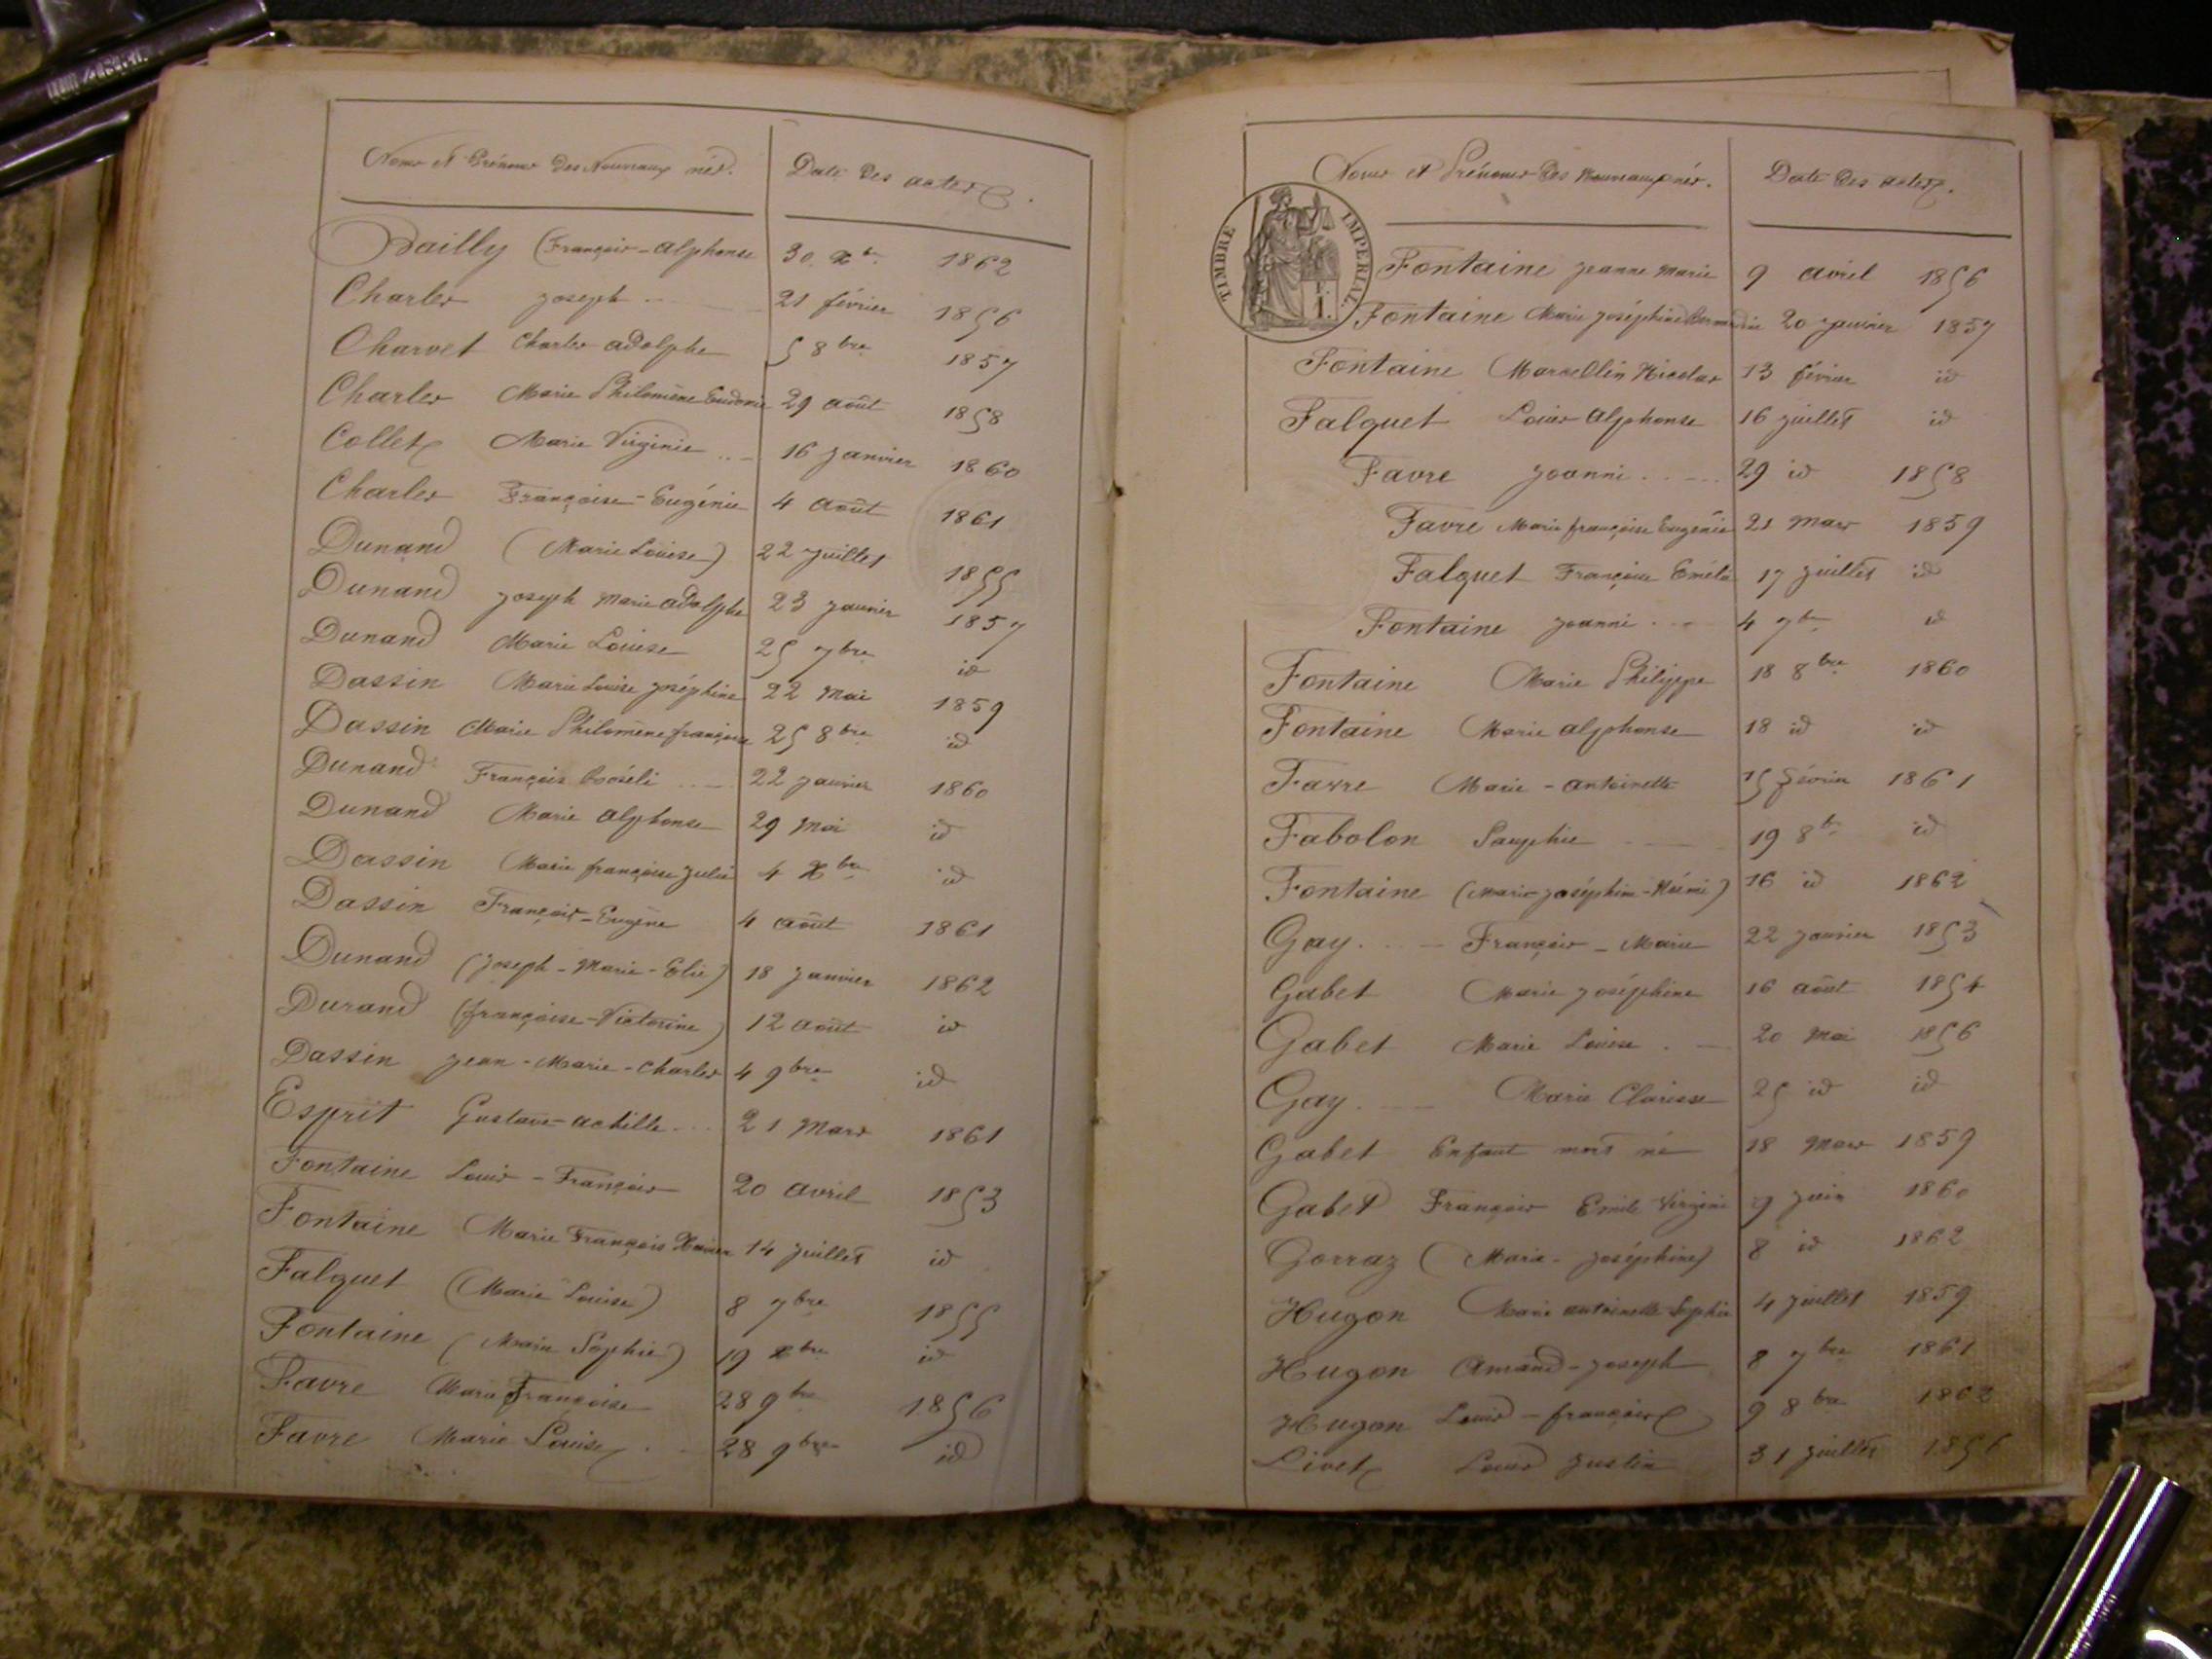 Noms et Prénoms des Nouveaux nés. Date des actes.
Bailly (François-Alphonse 30 Xbre 1862
Charles Joseph 21 février 1856
Charvet Charles adolphe 5 8bre 1857
Charles Marie Philomène Eudoxie 29 août 1858
Collet Marie Virginie 16 janvier 1860
Charles Françoise-Eugénie 4 août 1861
Dunand (Marie Louise) 22 juillet 1855
Dunand Joseph Marie adolphe 23 janvier 1857
Dunand Marie Louise 25 7bre id
Dassin Marie Louise Joséphine 22 Mai 1859
Dassin Marie Philomène françoise 25 8bre id
Dunand François 22 janvier 1860
Dunand Marie alphonse 29 Mai id
Dassin Marie françoise Julie 4 Xbre id
Dassin François-Eugène 4 août 1861
Dunand (Joseph-Marie-Elie) 18 janvier 1862
Durand (françoise-Victorine) 12 août id
Dassin Jean-Marie-Charles 4 9bre id
Esprit Gustave-achille 21 Mars 1861
Fontaine Louis-François 20 avril 1853
Fontaine Marie François Xavier 14 juillet id
Falquet (Marie Louise) 8 7bre 1855
Fontaine (Marie Sophie) 19 Xbre id
Favre Marie Françoise 28 9bre 1856
Favre Marie Louise 28 9bre id
Noms et Prénoms des Nouveaux nés. Date des actes.
TIMBRE IMPERIAL
1
Fontaine Jeanne Marie 9 avril 1856
Fontaine Marie Joséphine Bernardine 20 janvier 1857
Fontaine Marcellin Nicolas 13 février id
Falquet Louis Alphonse 16 juillet id
Favre Joanni 29 id 1858
Favre Marie françoise Eugénie 21 Mars 1859
Falquet Françoise 17 juillet id
Fontaine Joanni 4 7bre id
Fontaine Marie Philippe 18 8bre 1860
Fontaine Marie alphonse 18 id id
Favre Marie-antoinette 15 février 1861
Fabolon Sauphie 19 8bre id
Fontaine (Marie-Joséphine-Noémi) 16 id 1862
Gay François-Marie 22 janvier 1853
Gabet Marie Joséphine 16 août 1854
Gabet Marie Louise 20 Mai 1856
Gay Marie Clarisse 25 id id
Gabet Enfant mort né 18 Mars 1859
Gabet François Emile Virginie 9 juin 1860
Gorraz (Marie-Joséphine) 8 id 1862
Hugon Marie antoinette Sophie 4 juillet 1859
Hugon Amand-Joseph 8 7bre 1861
Hugon Louis-françois 9 8bre 1862
Livet Louis Justin 31 juillet 1856